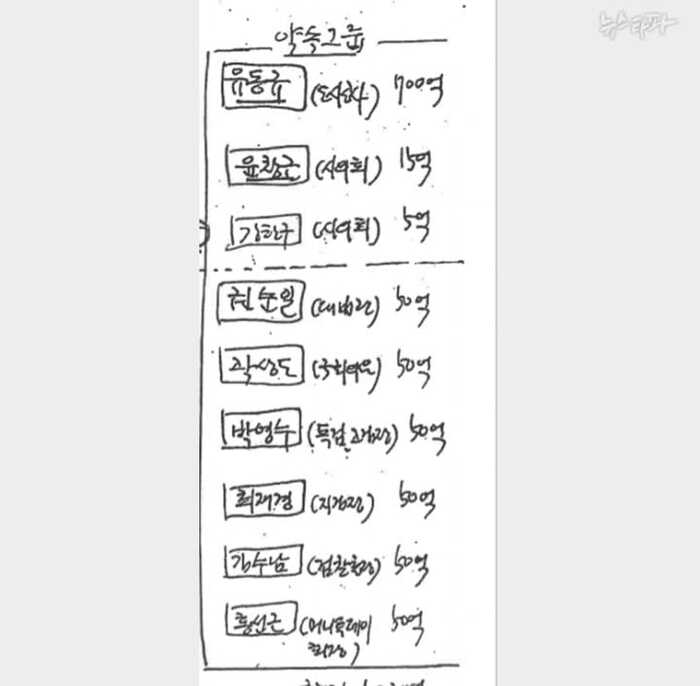 뉴스타파
약속그룹
유동규 (도시공사) 700억
윤창근 (시의회) 15억
강한구 (시의회) 5억
권순일 (대법관) 50억
곽상도 (국회의원) 50억
박영수 (특검 고검장) 50억
최재경 (지검장) 50억
김수남 (검찰총장) 50억
홍선근 (머니투데이
회장) 50억